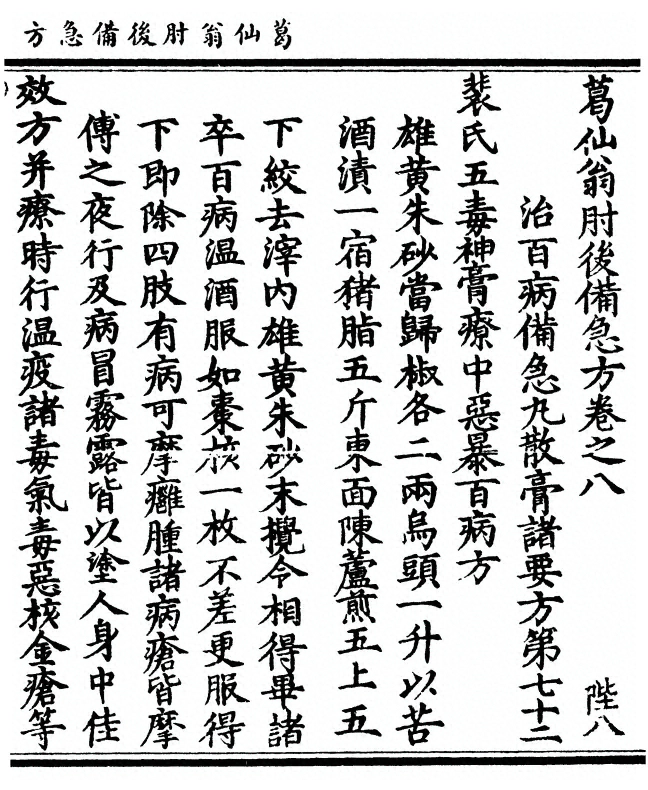 葛仙翁肘後備急方
葛仙翁肘後備急方卷之八 陛八
治百病備急丸散膏諸要方第七十二
裴氏五毒神膏療中惡暴百病方
雄黃朱砂當歸椒各二兩烏頭一升以苦
酒漬一宿猪脂五斤東面陳蘆煎五上五
下絞去滓內雄黃朱砂末攪令相得畢諸
卒百病温酒服如棗核一枚不差更服得
下即除四肢有病可摩癰腫諸病瘡皆摩
傅之夜行及病冒霧露皆以塗人身中佳
效方并療時行温疫諸毒氣毒惡核金瘡等